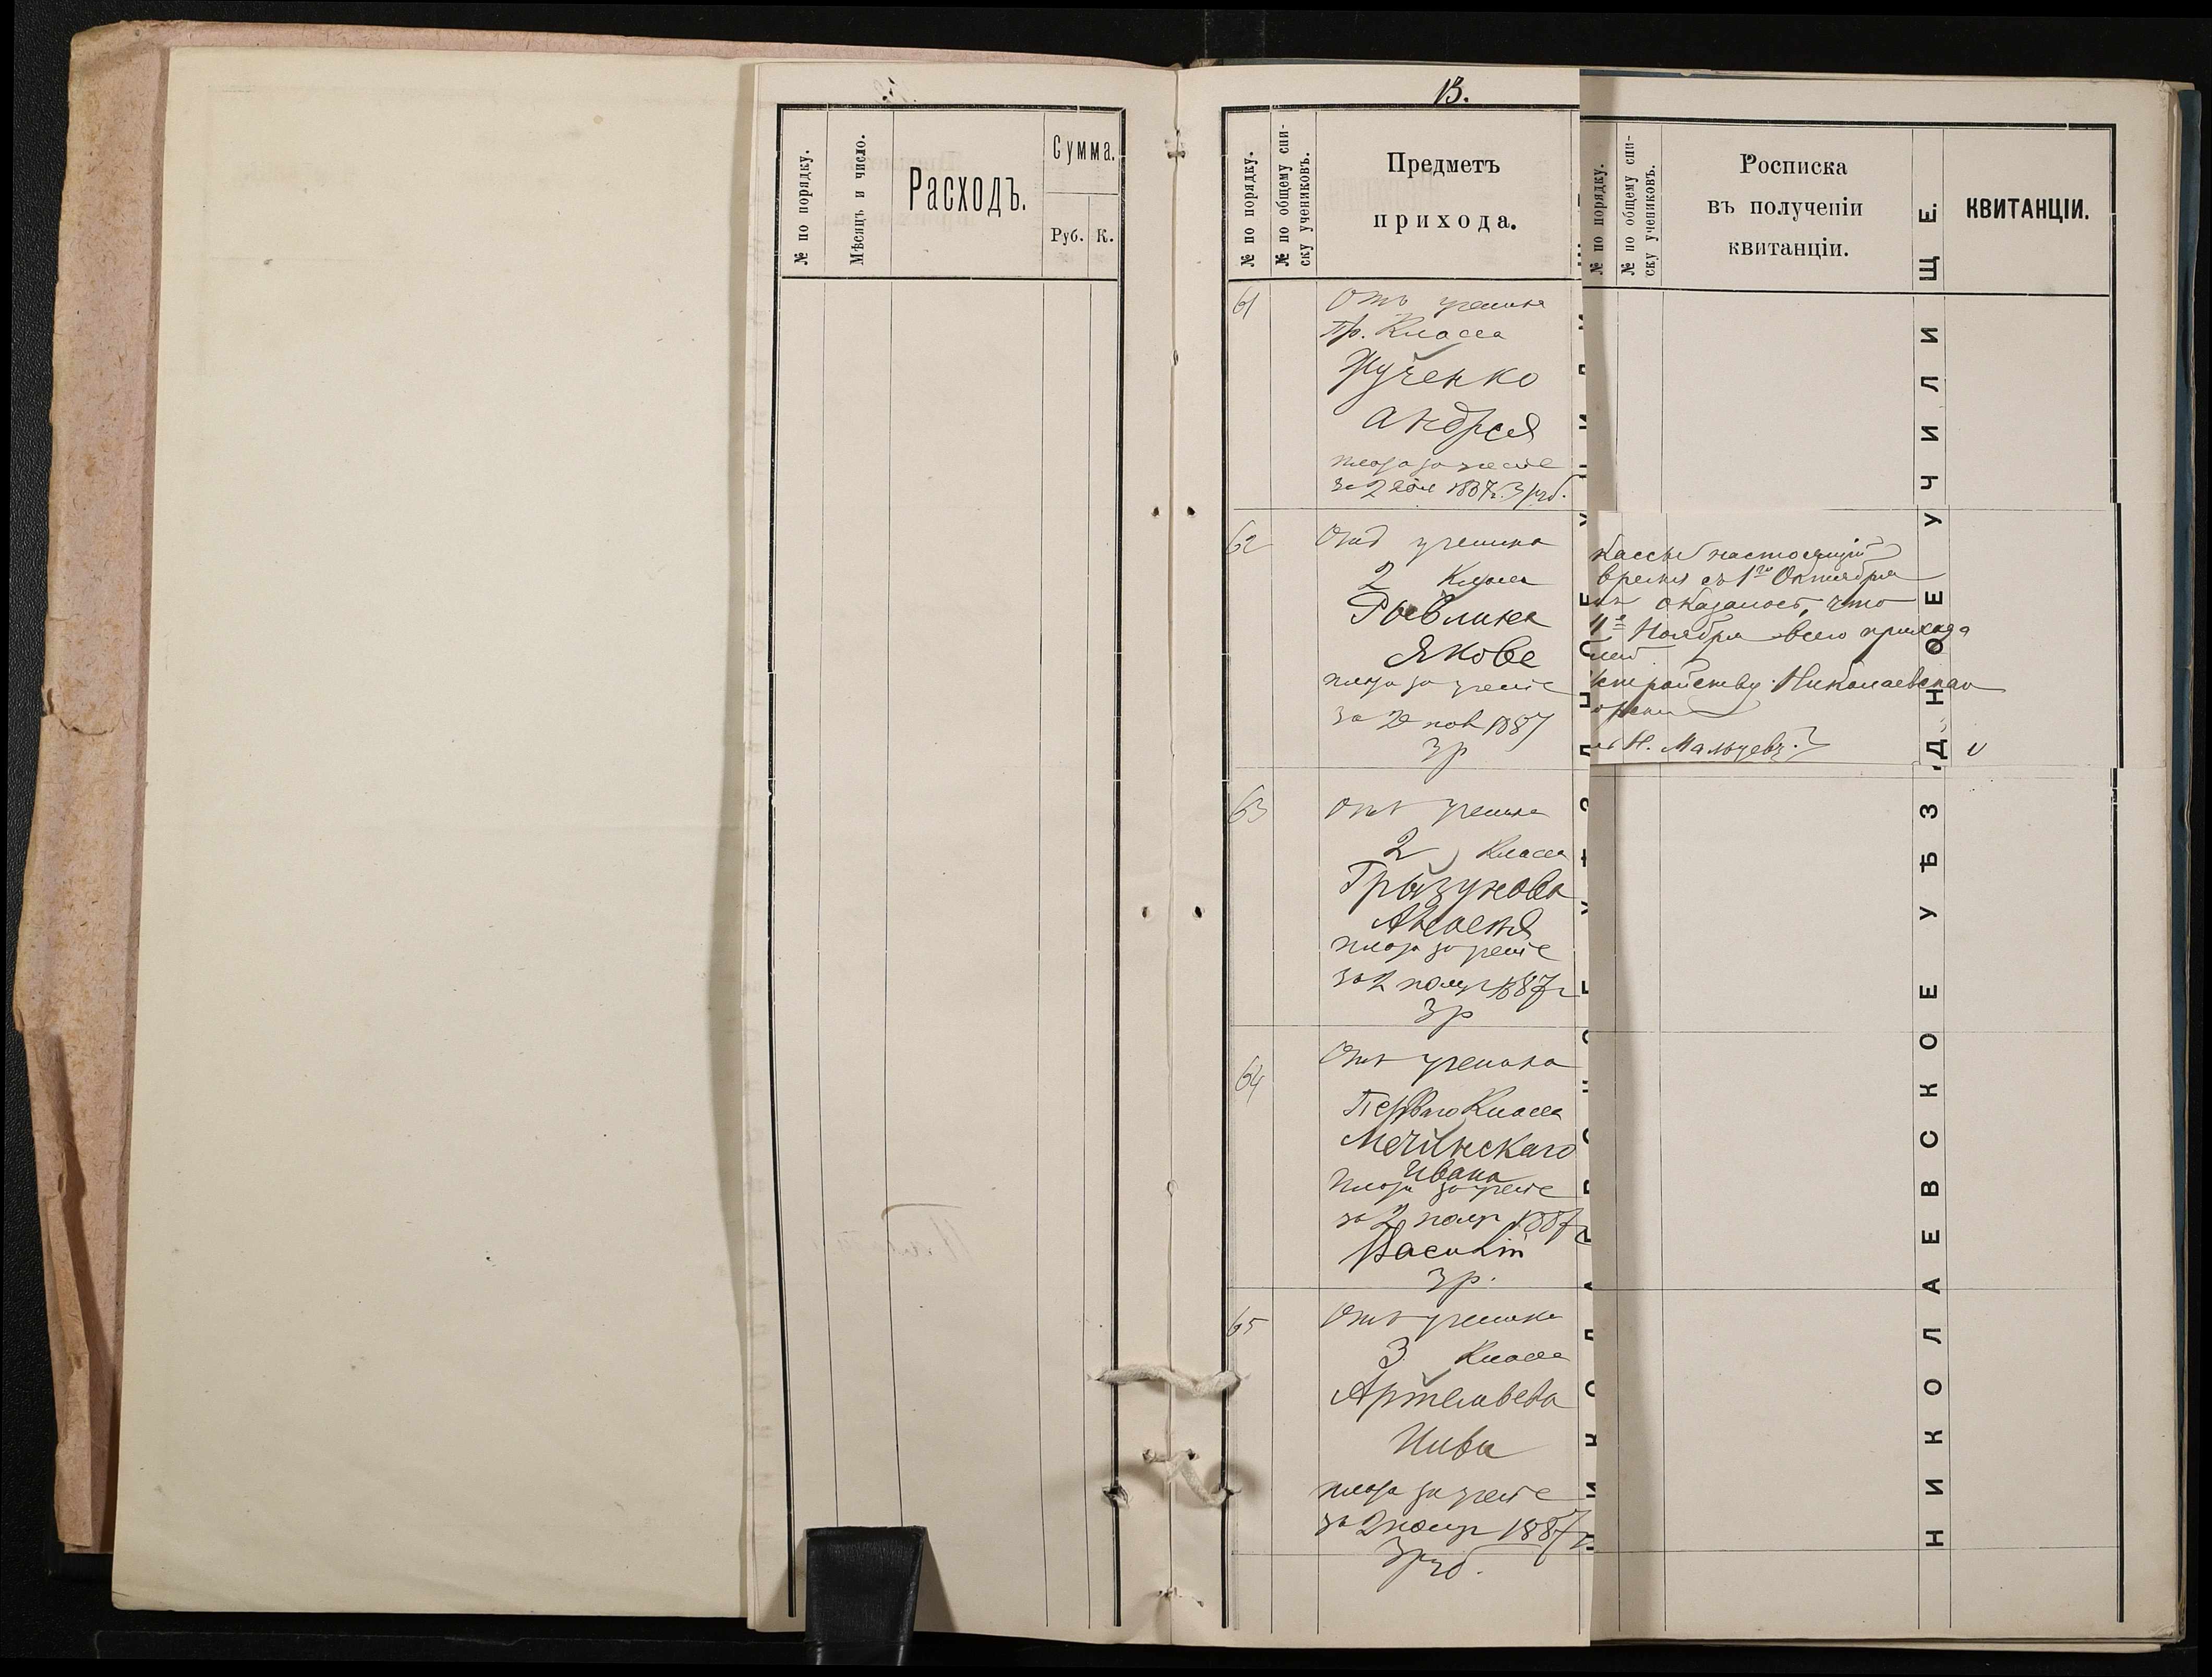 13.
№ по порядку.
Мѣсяцъ и число.
Расходъ.
Сумма.
Руб. К.
№ по порядку.
№ по общему спи-
ску учениковъ.
Предметъ
прихода.
61
Отъ ученика
Пр. Класса
Жученко
Андрея
плата за ученіе
1887г. 3 руб.
62
Отъ ученика
2 Класса
Якова
плата за ученіе
за 2 1887
3 р
63
Отъ ученика
2 Класса
Грызунова
плата за ученіе
за 2 полуг 1887 г
3 р
64
Отъ ученика
Перваго Класса
Мечинскаго
Ивана
плата за ученіе
за 2 полуг 1887 г
3 р.
65
Отъ ученика
3 Класса
Артемьева
плата за ученіе
за 2 полуг 1887 г
3 руб.
№ по порядку.
№ по общему спи-
ску учениковъ.
Росписка
въ полученіи
квитанціи.
КВИТАНЦІИ.
кассы настоящій
время съ 1го Октября
оказалось, что
1е Ноября всего прихода
Николаевскаго
Н. Мальцевъ.
НИКОЛАЕВСКОЕ УѢЗДНОЕ УЧИЛИЩЕ.